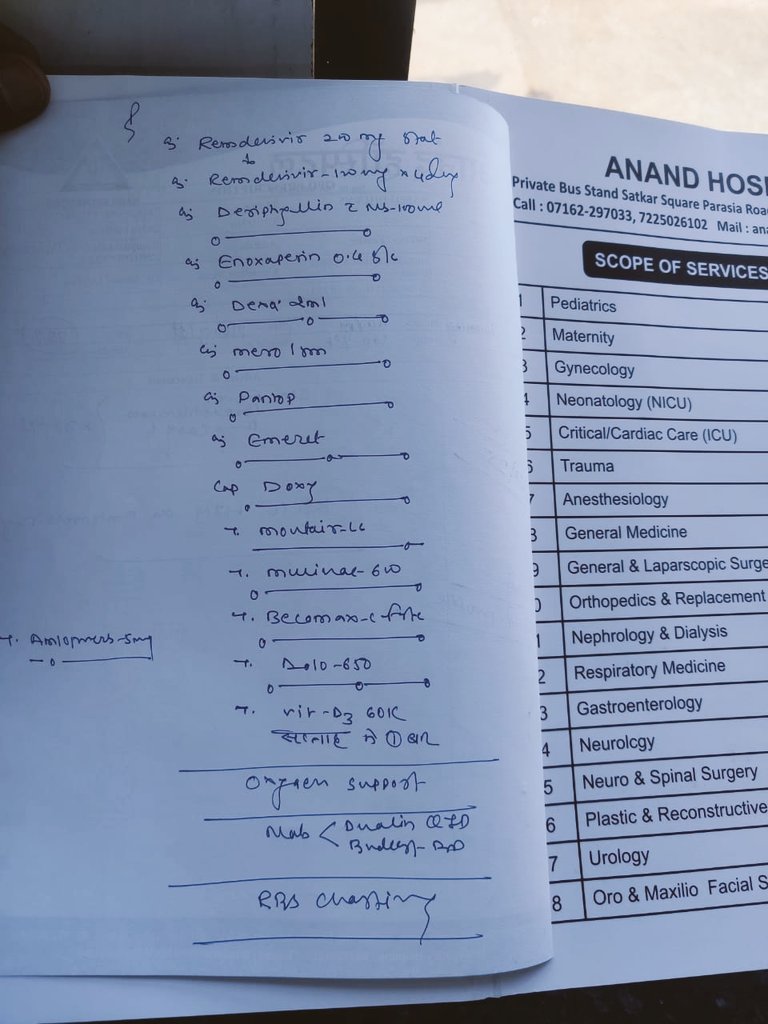 Inj. Remdesivir 200 mg stat
↓
Inj. Remdesivir-100mg x 4day
Inj. Deriphyllin c NS-100ml
Inj Enoxaperin 0.4 S/c
Inj. Dexa 2ml
Inj mero 1 gm
Inj Pantop
Inj Emeset
Cap Doxy
T. montair-LC
T. mucinac-600
T. Becomax-C forte
T. Amlopress-5mg
T. Dolo-650
T. vit-D3 60K
सप्ताह मे ① बार
Oxygen support
Neb < Duolin QID
Budecort-BD
RBS charting
ANAND HOS
Private Bus Stand Satkar Square Parasia Roa
Call : 07162-297033, 7225026102 Mail : ana
SCOPE OF SERVICES
1 Pediatrics
2 Maternity
3 Gynecology
4 Neonatology (NICU)
5 Critical/Cardiac Care (ICU)
6 Trauma
7 Anesthesiology
8 General Medicine
9 General & Laparscopic Surge
0 Orthopedics & Replacement
1 Nephrology & Dialysis
2 Respiratory Medicine
3 Gastroenterology
4 Neurolcgy
5 Neuro & Spinal Surgery
6 Plastic & Reconstructive
7 Urology
8 Oro & Maxilio Facial S